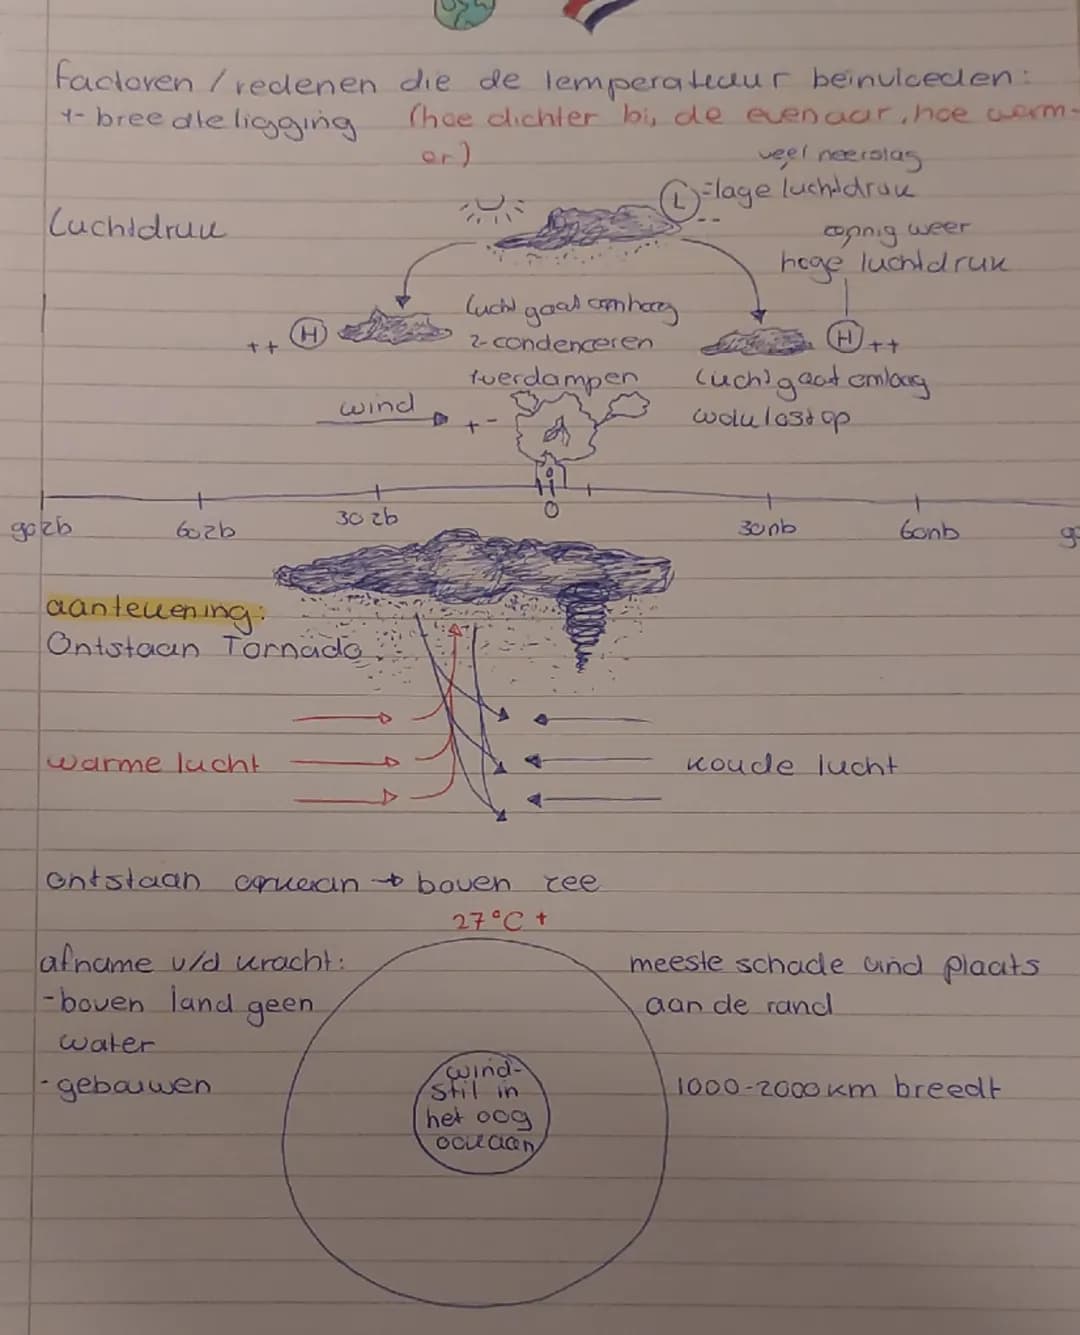 factoren / redenen die de temperatuur beinvloeden:
1- breedteligging (hoe dichter bij de evenaar, hoe warm-
er)
veel neerslag
L =lage luchtdruk
--
Luchtdruk
zonnig weer
hoge luchtdruk
lucht gaat omhoog
++ H
2-condenceren
H ++
1verdampen
lucht gaat omlaag
wind
+-
wolk lost op
90zb 60zb 30zb 0 30nb 60nb 90
aantekening:
Ontstaan Tornado
warme lucht
koude lucht
ontstaan orkaan → boven zee
27°C +
afname v/d kracht:
-boven land geen
water
-gebouwen
meeste schade vind plaats
aan de rand
1000-2000 km breedt
wind-
stil in
het oog